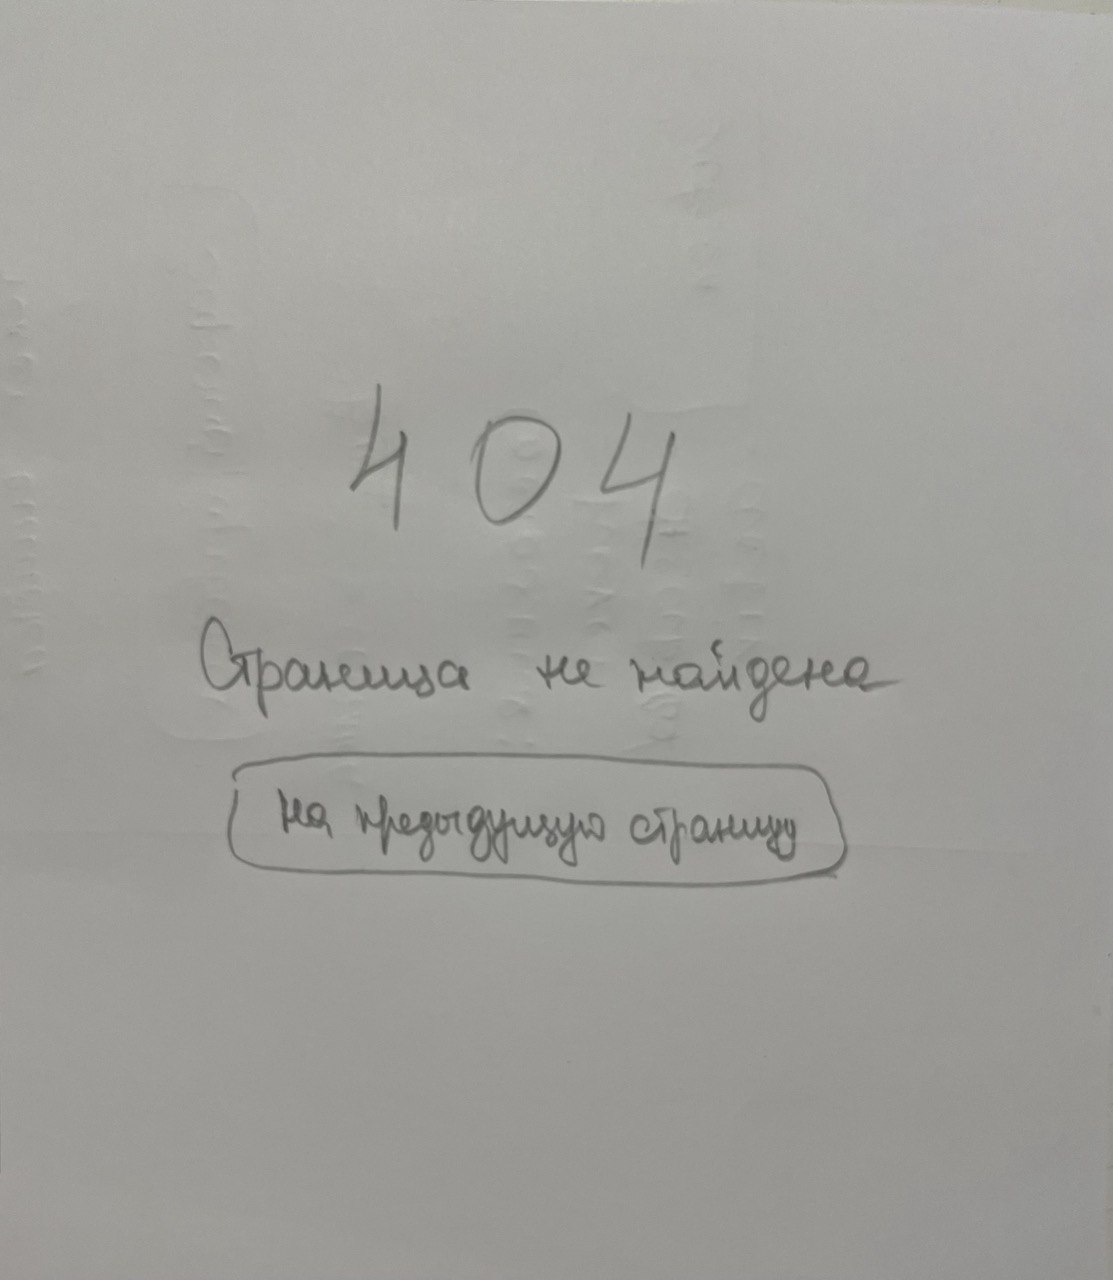 404
Страница не найдена
на предыдущую страницу